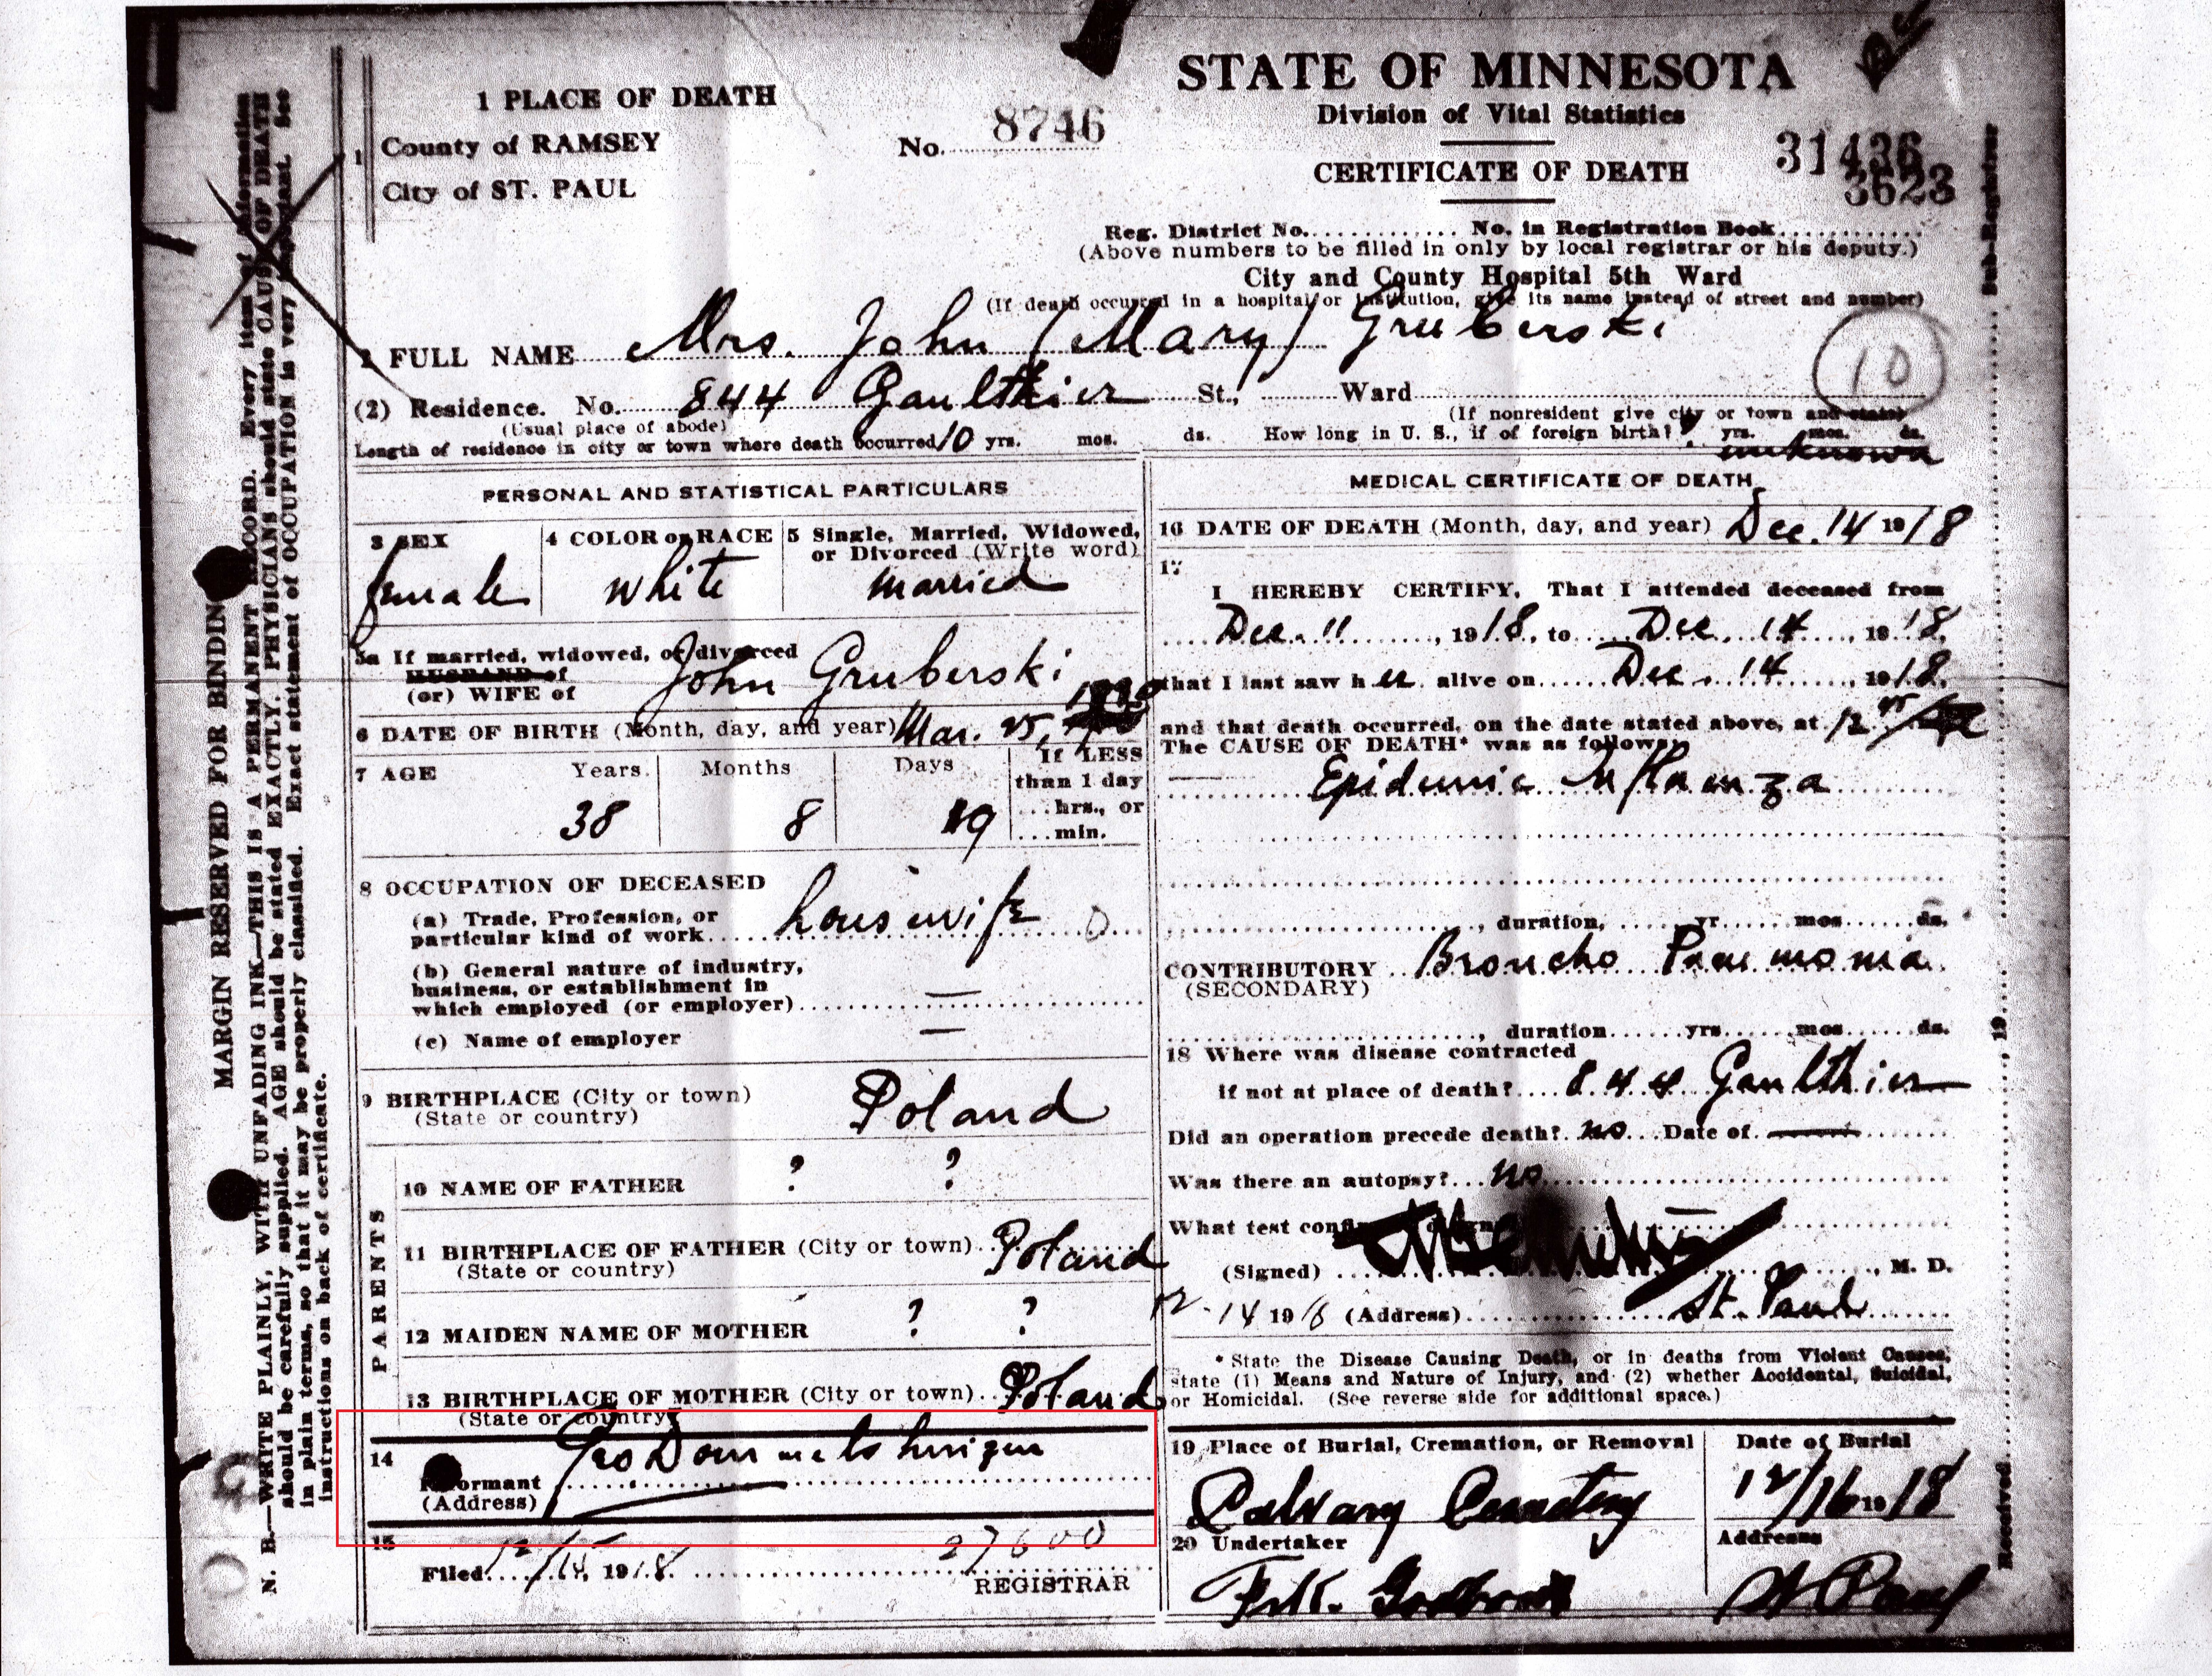 STATE OF MINNESOTA
Division of Vital Statistics
CERTIFICATE OF DEATH
31436
3623
1 PLACE OF DEATH
County of RAMSEY
City of ST. PAUL
No. 8746
Reg. District No. No. in Registration Book
(Above numbers to be filled in only by local registrar or his deputy.)
City and County Hospital 5th Ward
(If death occurred in a hospital or institution, give its name instead of street and number)
2 FULL NAME Mrs. John (Mary) Gruberski
10
(2) Residence. No. 844 Gaulthier St., Ward
(Usual place of abode) (If nonresident give city or town and state)
Length of residence in city or town where death occurred 10 yrs. mos. ds. How long in U. S., if of foreign birth? yrs. mos. ds.
unknown
PERSONAL AND STATISTICAL PARTICULARS
3 SEX
female
4 COLOR or RACE
white
5 Single, Married, Widowed,
or Divorced (Write word)
married
5a If married, widowed, or divorced
HUSBAND of
(or) WIFE of John Gruberski
6 DATE OF BIRTH (Month, day, and year) Mar. 25,
7 AGE Years Months Days If LESS
than 1 day
hrs., or
min.
38 8 19
8 OCCUPATION OF DECEASED
(a) Trade, Profession, or
particular kind of work housewife
(b) General nature of industry,
business, or establishment in
which employed (or employer) —
(c) Name of employer —
9 BIRTHPLACE (City or town)
(State or country) Poland
PARENTS
10 NAME OF FATHER ? ?
11 BIRTHPLACE OF FATHER (City or town) Poland
(State or country)
12 MAIDEN NAME OF MOTHER ? ?
13 BIRTHPLACE OF MOTHER (City or town) Poland
(State or country)
14
Informant Geo
(Address)
15
Filed 12/15, 1918 27600
REGISTRAR
MEDICAL CERTIFICATE OF DEATH
16 DATE OF DEATH (Month, day, and year) Dec. 14 1918
17
I HEREBY CERTIFY, That I attended deceased from
Dec. 11, 1918, to Dec. 14, 1918,
that I last saw her alive on Dec. 14, 1918,
and that death occurred, on the date stated above, at 12
The CAUSE OF DEATH* was as follows:
Epidemic Influenza
, duration, yr mos ds.
CONTRIBUTORY Broncho Pneumonia
(SECONDARY)
, duration yrs mos ds.
18 Where was disease contracted
if not at place of death? 844 Gaulthier
Did an operation precede death? no Date of
Was there an autopsy? no
What test
(Signed) , M. D.
12-14 1918 (Address) St. Paul
* State the Disease Causing Death, or in deaths from Violent Causes,
state (1) Means and Nature of Injury, and (2) whether Accidental, Suicidal,
or Homicidal. (See reverse side for additional space.)
19 Place of Burial, Cremation, or Removal
Calvary Cemetery
Date of Burial
12/16 1918
20 Undertaker
Address
St Paul
MARGIN RESERVED FOR BINDING
N. B.—WRITE PLAINLY, WITH UNFADING INK—THIS IS A PERMANENT RECORD. Every item of information
should be carefully supplied. AGE should be stated EXACTLY. PHYSICIANS should state CAUSE OF DEATH
in plain terms, so that it may be properly classified. Exact statement of OCCUPATION is very important. See
instructions on back of certificate.
Received , 19 Sub-Registrar